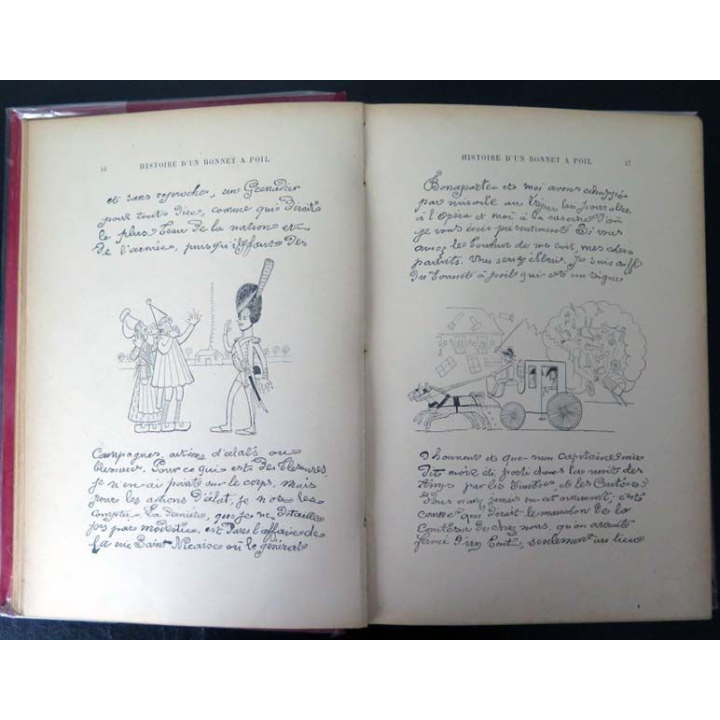 16
HISTOIRE D'UN BONNET A POIL
et sans reproches, un Grenadier
pour tout dire, comme qui dirait
le plus beau de la nation et
de l'armée, puisqu'il faut des
Campagnes, actions d'éclats ou
blessures. Pour ce qui est des blessures
je n'en ai point sur le corps, mais
pour les actions d'éclat, je ne les
compte. La dernière, que je ne détaille
pas par modestie, est dans l'affaire de
la rue Saint Nicaise où le général
HISTOIRE D'UN BONNET A POIL
17
Bonaparte et moi avons échappé
par miracle au
à l'Opéra et moi à la caserne d'où
je vous écris présentement. Si vous
aviez le bonheur de me voir, mes chers
parents. Vous seriez éblouis. Je suis
des bonnets à poil qui est un signe
d'honneur et que mon capitaine m'a
dit avoir été porté dans la nuit des
temps par les et les
comme que dirait le mouton de la
Comtesse de chez nous, qu'on aurait
seulement au lieu